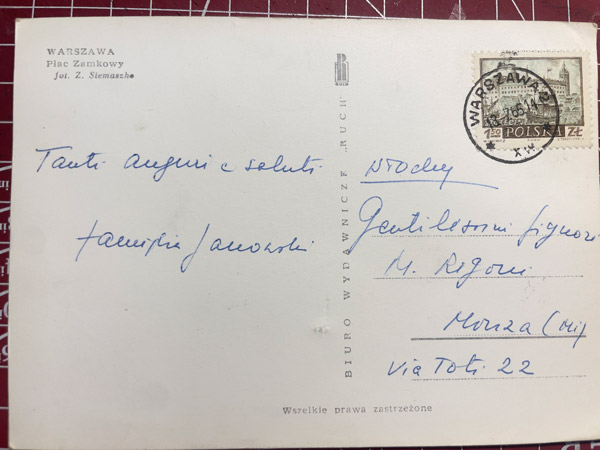 WARSZAWA
Plac Zamkowy
fot. Z. Siemaszko
RUCH
BIURO WYDAWNICZE „RUCH"
Wszelkie prawa zastrzeżone
Tanti auguri e saluti
famiglia Janowski
Włochy
Gentilissimi Signori
M. Rigoni
Monza (Mi)
Via Toti 22
WARSZAWA
POLSKA
ZŁ